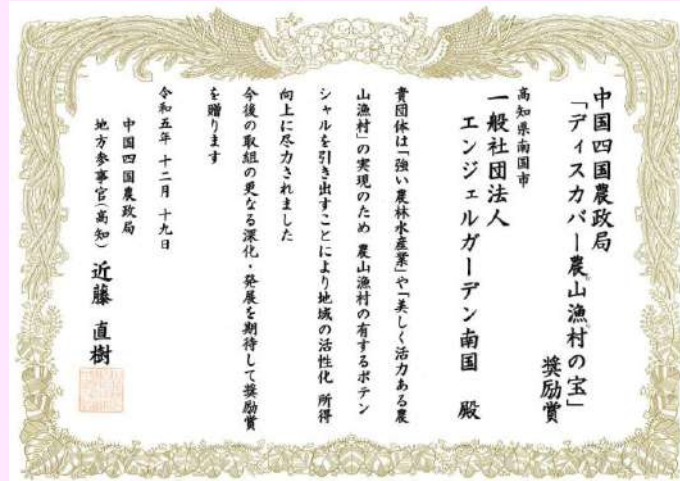 中国四国農政局
「ディスカバー農山漁村の宝」
奨励賞
高知県南国市
一般社団法人
エンジェルガーデン南国　殿
貴団体は「強い農林水産業」や「美しく活力ある農
山漁村」の実現のため　農山漁村の有するポテン
シャルを引き出すことにより地域の活性化　所得
向上に尽力されました
今後の取組の更なる深化・発展を期待して奨励賞
を贈ります
令和五年　十二月　十九日
中国四国農政局
地方参事官（高知）　近藤　直樹